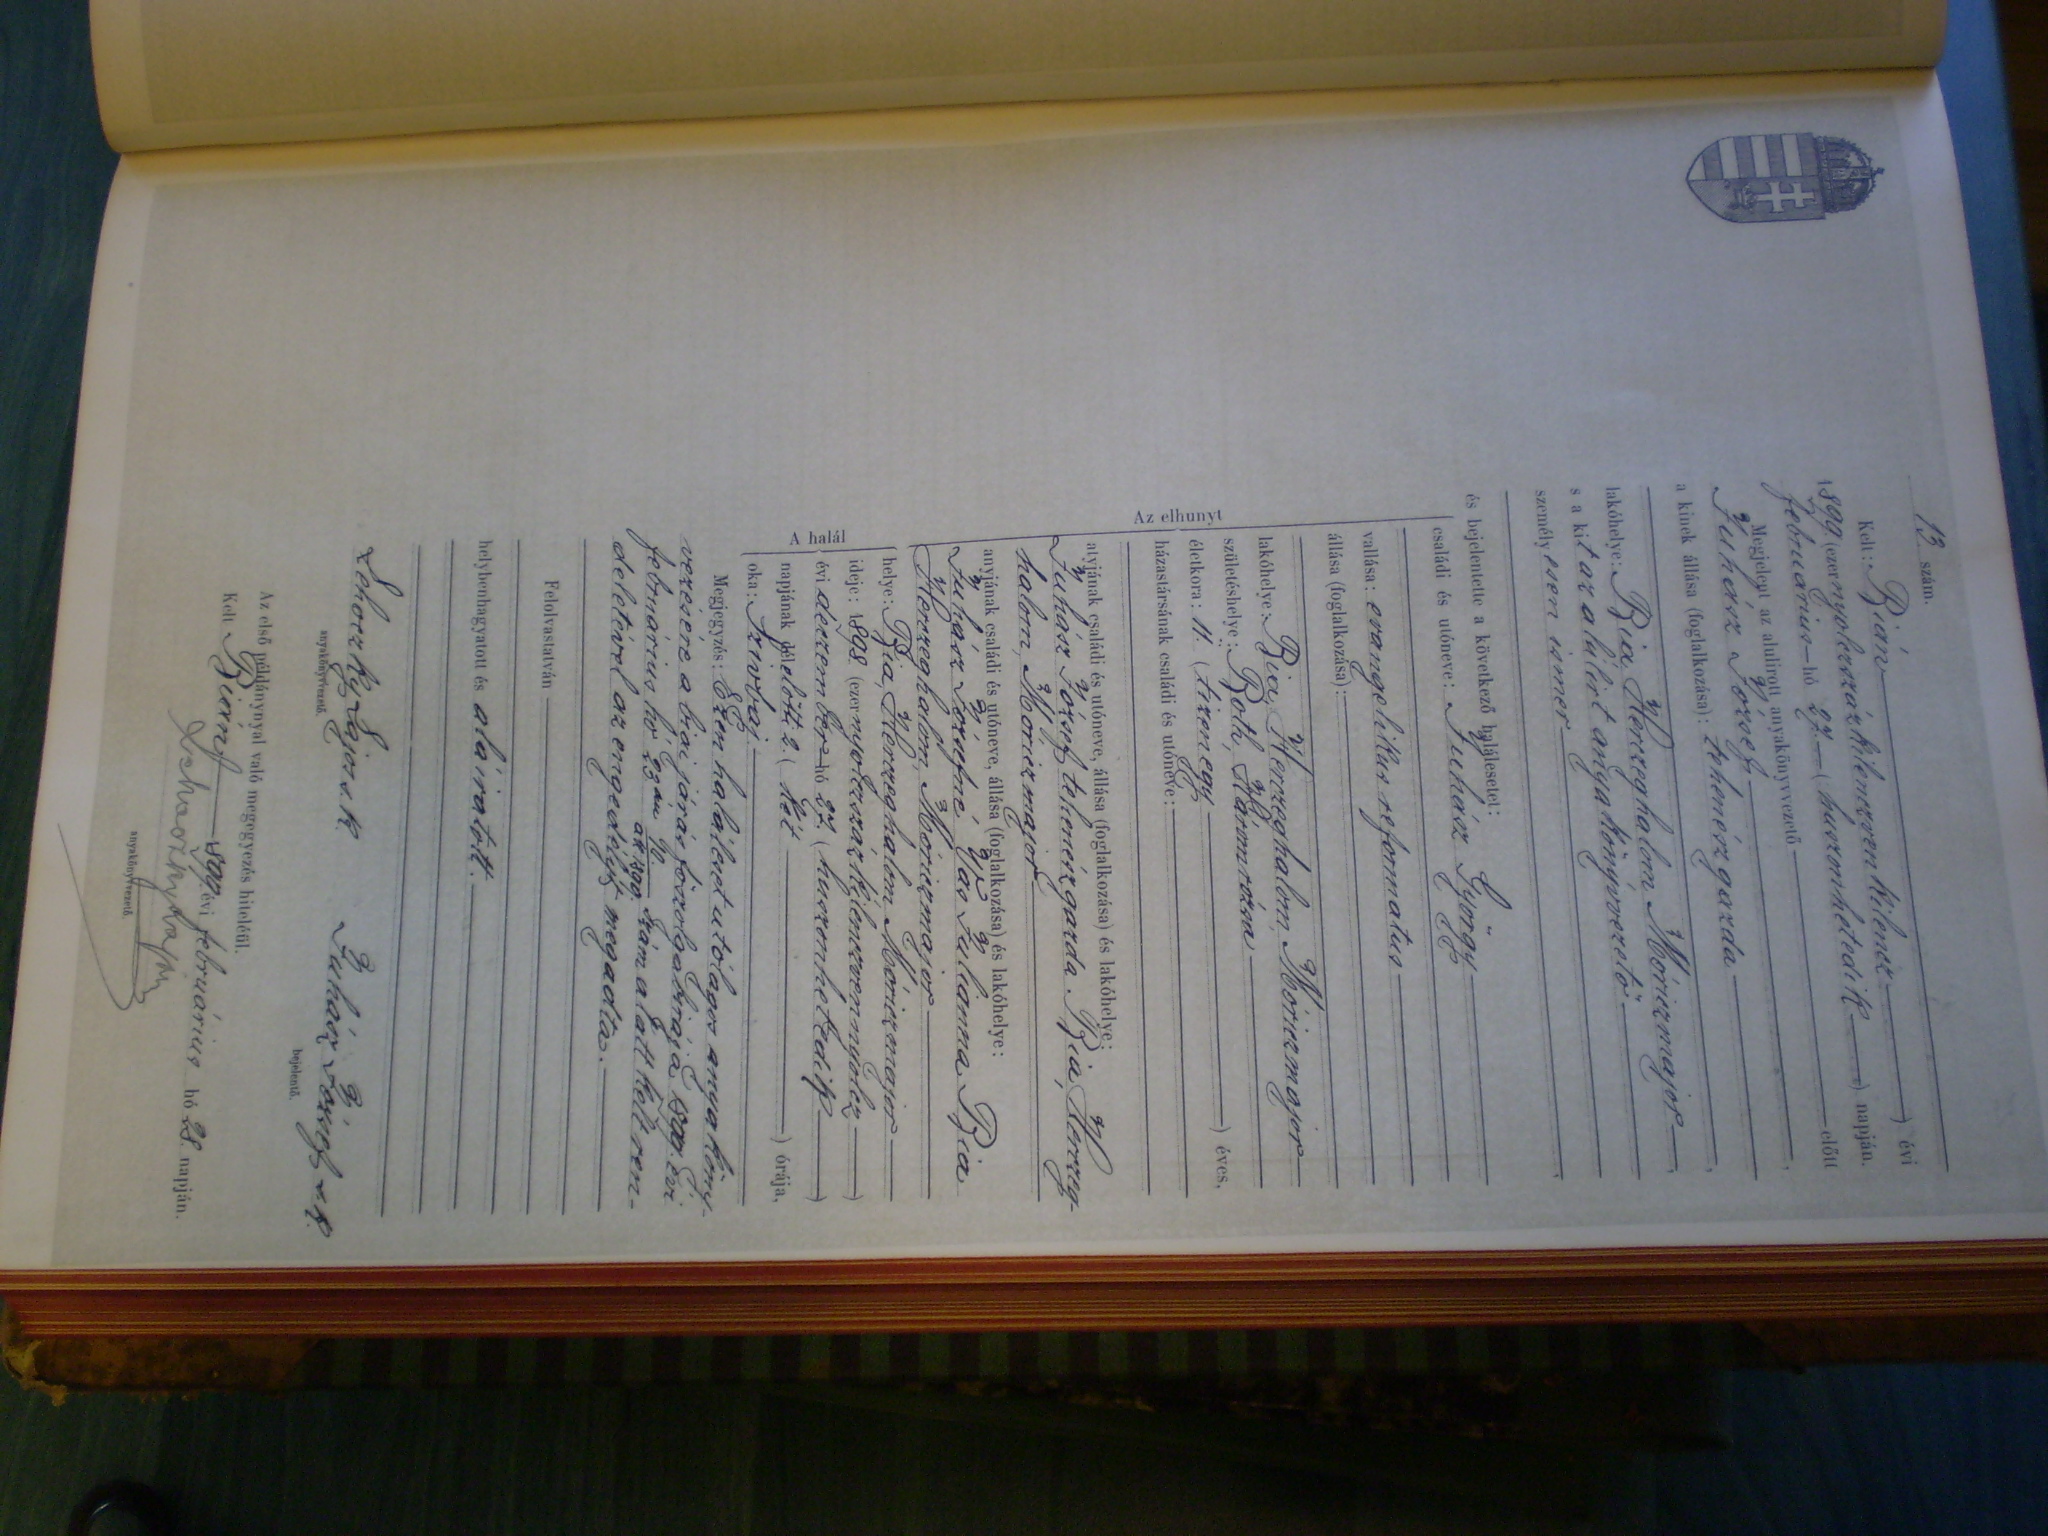 13. szám.
Kelt: Bián
1899 (ezernyolczszázkilenczvenkilencz) évi
februárius hó 27. (huszonhetedik) napján.
Megjelent az alulirott anyakönyvvezető előtt
Juhász József,
a kinek állása (foglalkozása): tehenész gazda,
lakóhelye: Bia, Herczeghalom, Móriczmajor,
s a kit az alulirt anyakönyvvezető
személyesen ismer,
és bejelentette a következő halálesetet:
Az elhunyt
családi és utóneve: Juhász György
vallása: evangelikus reformatus
állása (foglalkozása):
lakóhelye: Bia, Herczeghalom, Móriczmajor
születéshelye: Roth,
életkora: 11. (tizenegy) éves,
házastársának családi és utóneve:
atyjának családi és utóneve, állása (foglalkozása) és lakóhelye:
Juhász József tehenész gazda. Bia, Herczeg-
halom, Móriczmajor
anyjának családi és utóneve, állása (foglalkozása) és lakóhelye:
Juhász Józsefné Julianna Bia
Herczeghalom, Móriczmajor
A halál
helye: Bia, Herczeghalom Móriczmajor
ideje: 1898. (ezernyolczszázkilenczvennyolcz)
évi deczember hó 27. (huszonhetedik)
napjának délelőtt 2. (két) órája,
oka:
Megjegyzés: Ezen haláleset utólagos anyaköny-
vezésére a biai járás főszolgabirája 1899. évi
februárius hó 23án szám alatt kelt ren-
deletével az engedélyt megadta.
Felolvastatván
helybenhagyatott és aláiratott.
Lehoczky Lajos s. k. Juhász József s. k.
anyakönyvvezető. bejelentő.
Az első példánynyal való megegyezés hiteléül.
Kelt Bián, 1899 évi februárius hó 28. napján.
Lehoczky Lajos
anyakönyvvezető.